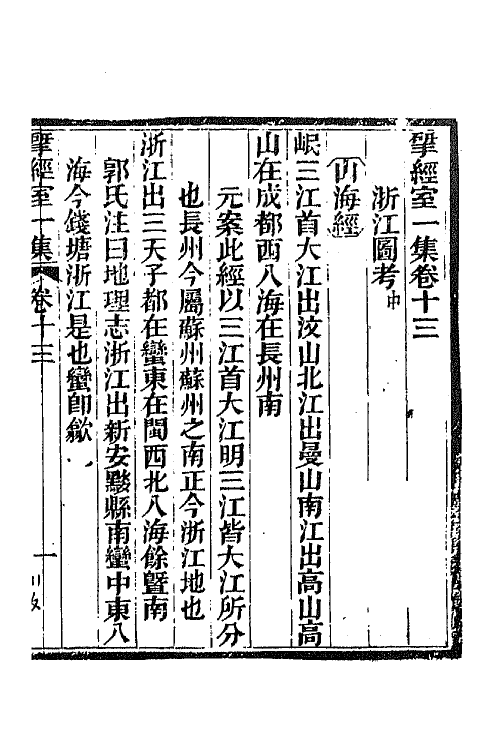 揅經室一集卷十三
浙江圖考中
山海經
岷三江首大江出汶山北江出曼山南江出高山高
山在成都西入海在長州南
元案此經以三江首大江明三江皆大江所分
也長州今屬蘇州蘇州之南正今浙江地也
浙江出三天子都在蠻東在閩西北入海餘曁南
郭氏注曰地理志浙江出新安黟縣南蠻中東入
海今錢塘浙江是也蠻卽歙
揅經室一集 卷十三 一